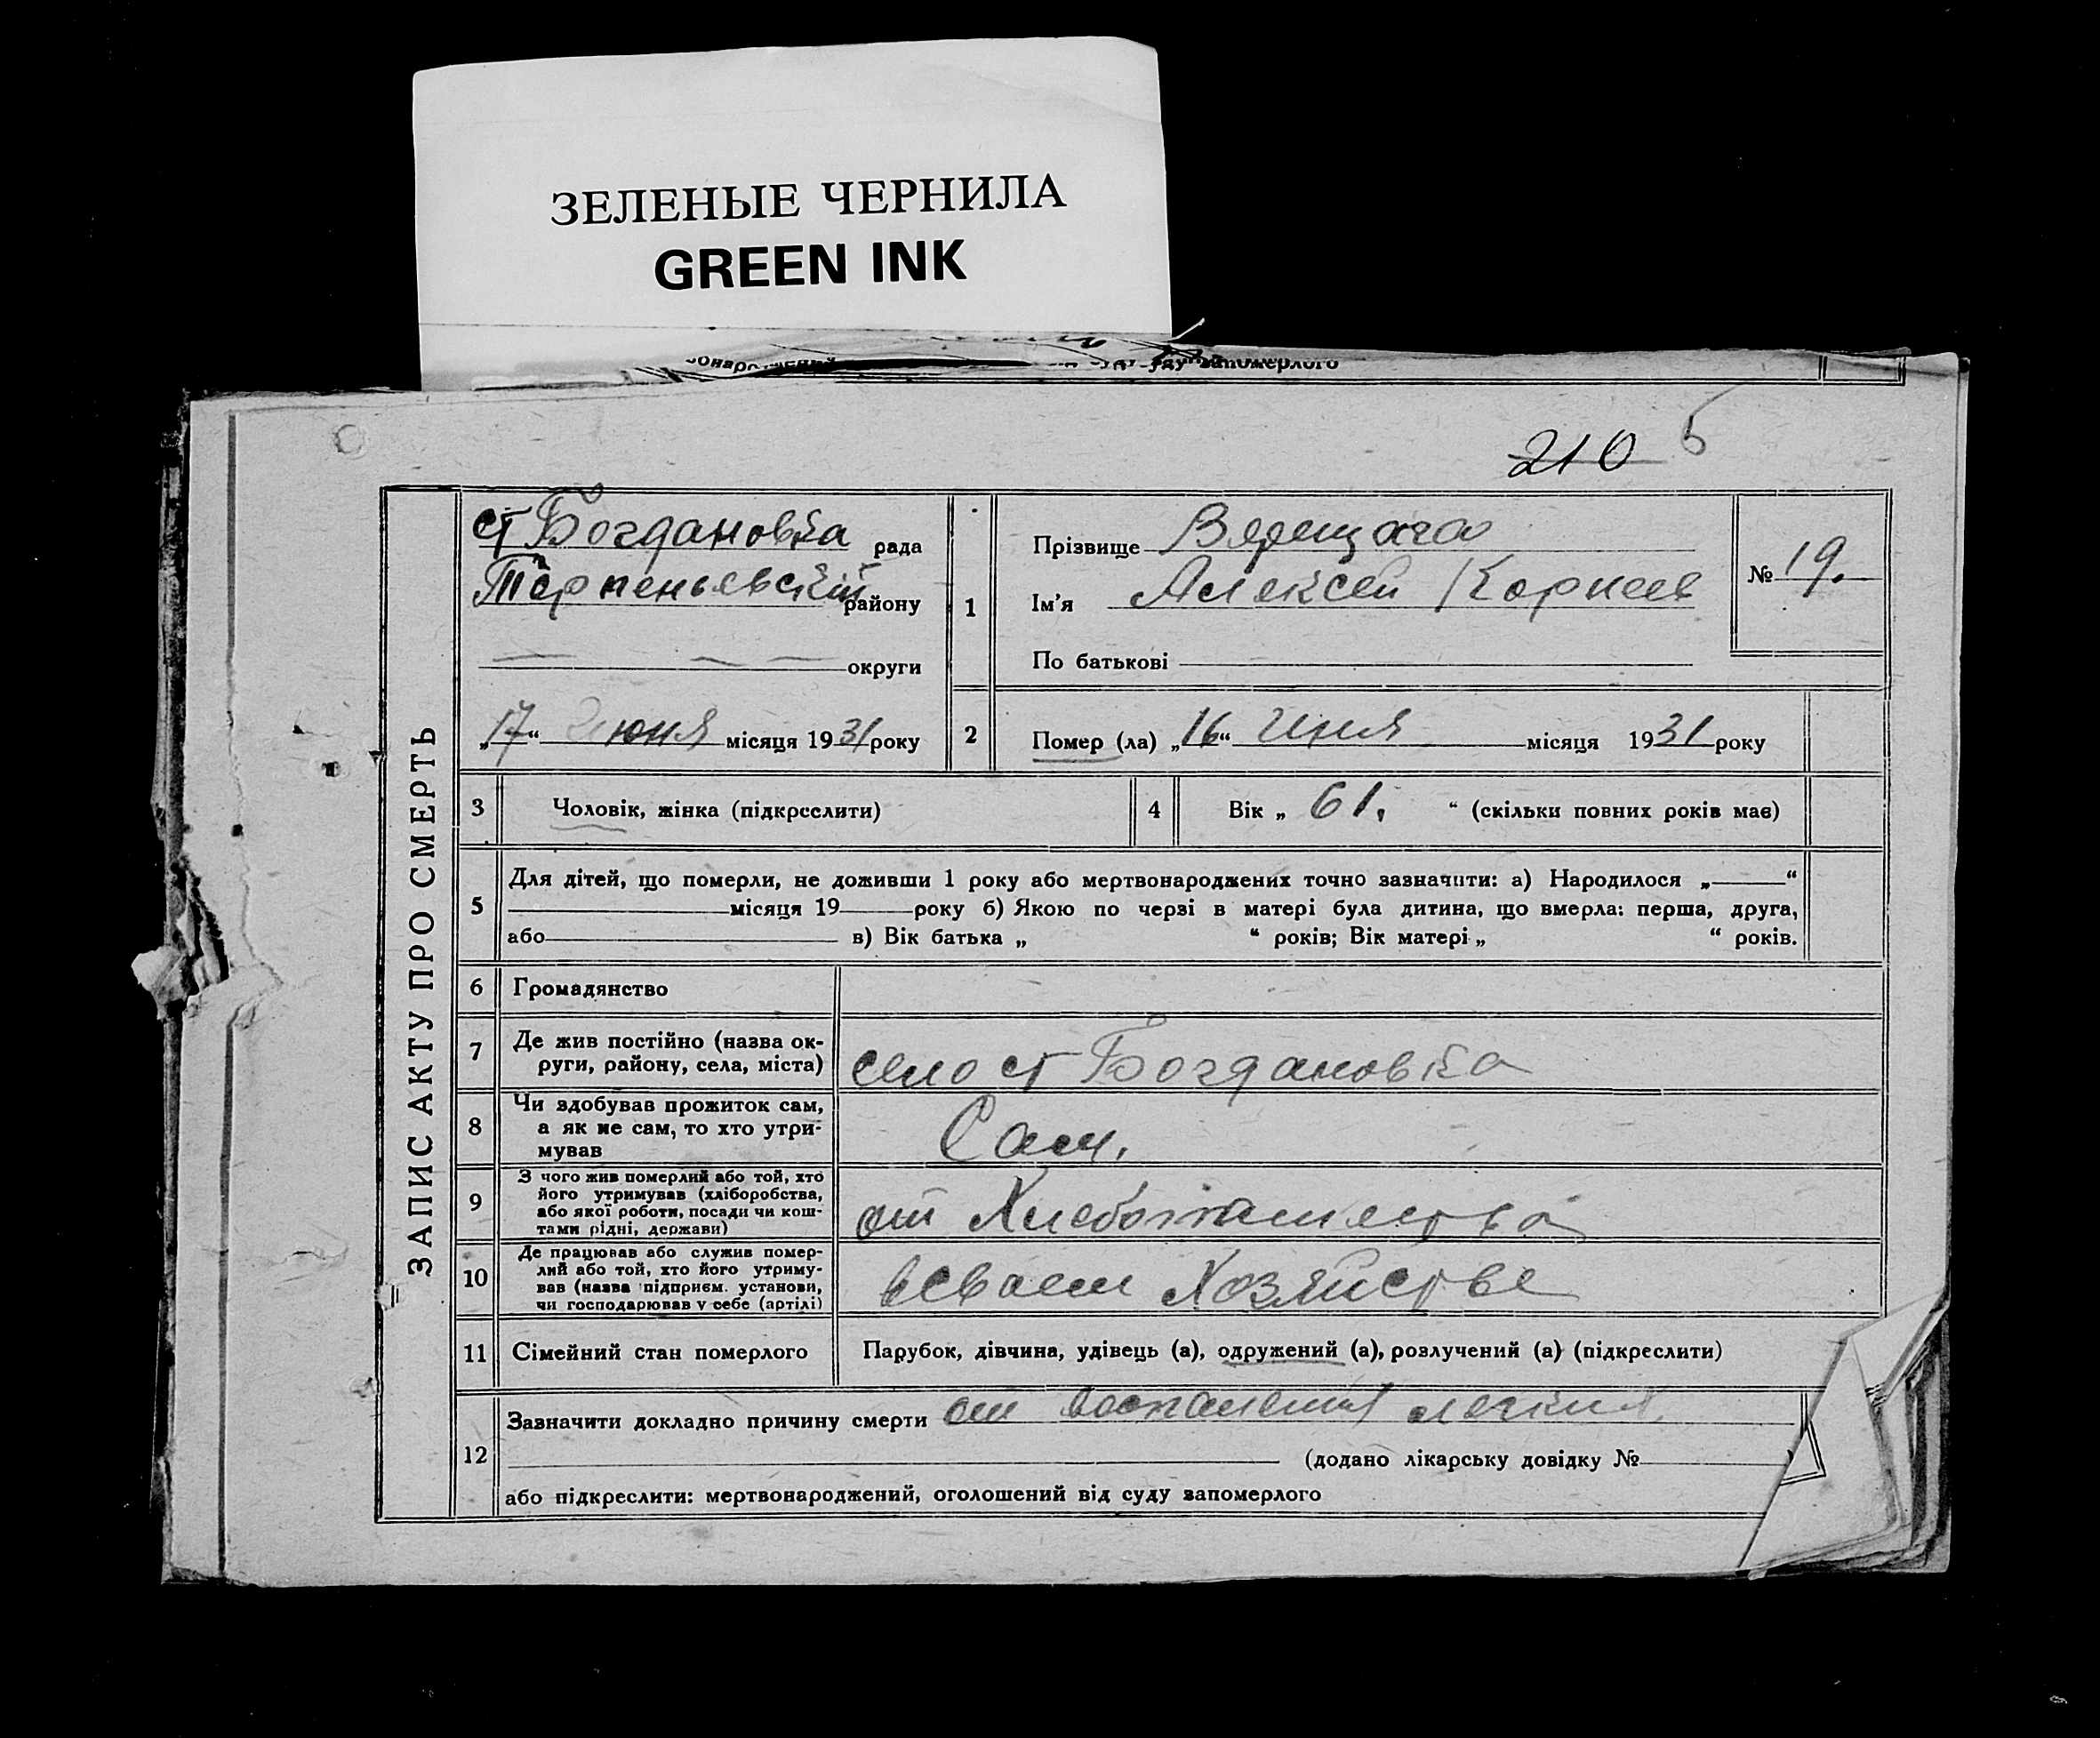 ЗЕЛЕНЫЕ ЧЕРНИЛА
GREEN INK
запомерлого
210 б
ЗАПИС АКТУ ПРО СМЕРТЬ
ст Богдановка рада
Терпеньевский району
округи
„17“ июня місяця 1931 року
1
Прізвище Верещага
Ім’я Алексей Корнеев
По батькові
№ 19.
2
Помер (ла) „16“ Июня місяця 1931 року
3 Чоловік, жінка (підкреслити)
4 Вік „ 61. “ (скільки повних років має)
5
Для дітей, що померли, не доживши 1 року або мертвонароджених точно зазначити: а) Народилося „ “
місяця 19 року б) Якою по черзі в матері була дитина, що вмерла: перша, друга,
або в) Вік батька „ “ років; Вік матері „ “ років.
6 Громадянство
7 Де жив постійно (назва ок-
руги, району, села, міста)
село ст Богдановка
8 Чи здобував прожиток сам,
а як не сам, то хто утри-
мував
Сам.
9 З чого жив померлий або той, хто
його утримував (хліборобства,
або якої роботи, посади чи кош-
тами рідні, держави)
от Хлебопашества
10 Де працював або служив помер-
лий або той, хто його утриму-
вав (назва підприєм. установи,
чи господарював у себе (артілі)
всваем Хозяйстве
11 Сімейний стан померлого
Парубок, дівчина, удівець (а), одружений (а), розлучений (а) (підкреслити)
12
Зазначити докладно причину смерти от воспаления легких
(додано лікарську довідку №
або підкреслити: мертвонароджений, оголошений від суду запомерлого